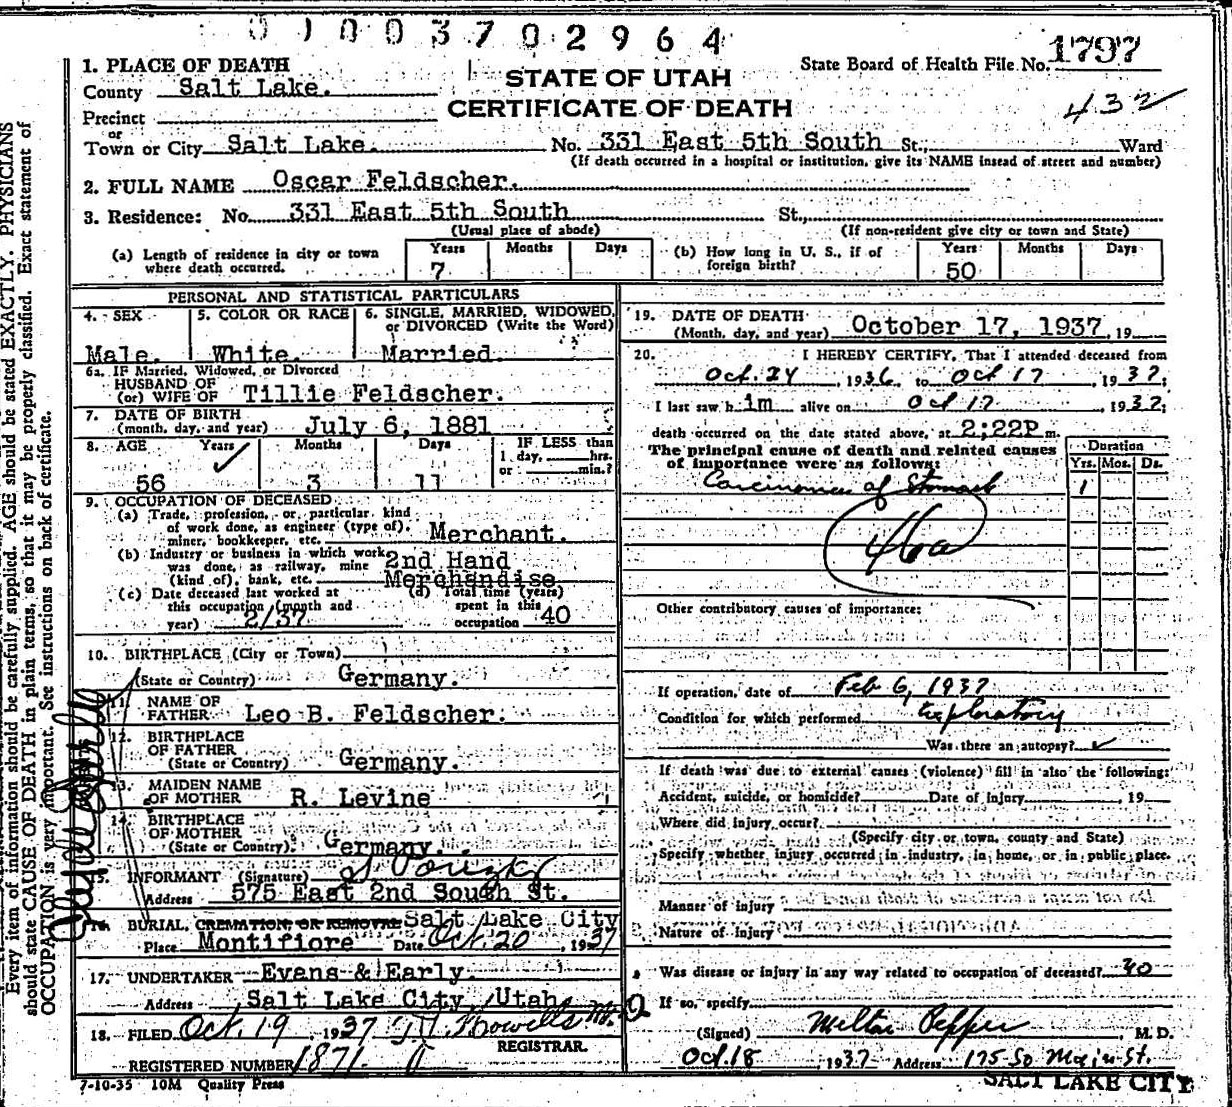 0100370 2964
1. PLACE OF DEATH
County Salt Lake.
STATE OF UTAH
CERTIFICATE OF DEATH
State Board of Health File No. 1797
432
Precinct
or
Town or City Salt Lake. No. 331 East 5th South St., Ward
(If death occurred in a hospital or institution, give its NAME instead of street and number)
2. FULL NAME Oscar Feldscher.
3. Residence: No. 331 East 5th South St.,
(Usual place of abode) (If non-resident give city or town and State)
(a) Length of residence in city or town where death occurred. Years 7 Months Days
(b) How long in U. S., if of foreign birth? Years 50 Months Days
PERSONAL AND STATISTICAL PARTICULARS
4. SEX Male.
5. COLOR OR RACE White.
6. SINGLE, MARRIED, WIDOWED, or DIVORCED (Write the Word) Married.
6a. IF Married, Widowed, or Divorced
HUSBAND OF
(or) WIFE OF Tillie Feldscher.
7. DATE OF BIRTH
(month, day, and year) July 6, 1881
8. AGE Years 56 Months 3 Days 11 IF LESS than 1 day, hrs. or min.?
9. OCCUPATION OF DECEASED
(a) Trade, profession, or particular kind of work done, as engineer (type of), miner, bookkeeper, etc. Merchant.
(b) Industry or business in which work was done, as railway, mine (kind of), bank, etc. 2nd Hand Merchandise
(c) Date deceased last worked at this occupation (month and year) 2/37
(d) Total time (years) spent in this occupation 40
10. BIRTHPLACE (City or Town)
(State or Country) Germany.
11. NAME OF FATHER Leo B. Feldscher.
12. BIRTHPLACE OF FATHER
(State or Country) Germany.
13. MAIDEN NAME OF MOTHER R. Levine
14. BIRTHPLACE OF MOTHER
(State or Country) Germany.
15. INFORMANT (Signature)
Address 575 East 2nd South St.
16. BURIAL, CREMATION, OR REMOVAL Salt Lake City
Place Montifiore Date Oct. 20, 1937
17. UNDERTAKER Evans & Early.
Address Salt Lake City, Utah
18. FILED Oct. 19, 1937
REGISTRAR.
REGISTERED NUMBER 1871
7-10-35 10M Quality Press
19. DATE OF DEATH
(Month, day, and year) October 17, 1937, 19
20. I HEREBY CERTIFY, That I attended deceased from
Oct. 24, 1936, to Oct 17, 1937;
I last saw him alive on Oct 17, 1937;
death occurred on the date stated above, at 2;22P m.
The principal cause of death and related causes of importance were as follows:
Duration
Yrs. Mos. Ds.
Carcinoma of Stomach 1
Other contributory causes of importance:
If operation, date of Feb 6, 1937
Condition for which performed Exploratory
Was there an autopsy?
If death was due to external causes (violence) fill in also the following:
Accident, suicide, or homicide? Date of injury 19
Where did injury occur?
(Specify city or town, county and State)
Specify whether injury occurred in industry, in home, or in public place.
Manner of injury
Nature of injury
Was disease or injury in any way related to occupation of deceased? no
If so, specify
(Signed) Milton Pepper M. D.
Oct. 18, 1937 Address 175 So Main St.
SALT LAKE CITY
Every item of information should be carefully supplied. AGE should be stated EXACTLY. PHYSICIANS
should state CAUSE OF DEATH in plain terms, so that it may be properly classified. Exact statement of
OCCUPATION is very important. See instructions on back of certificate.